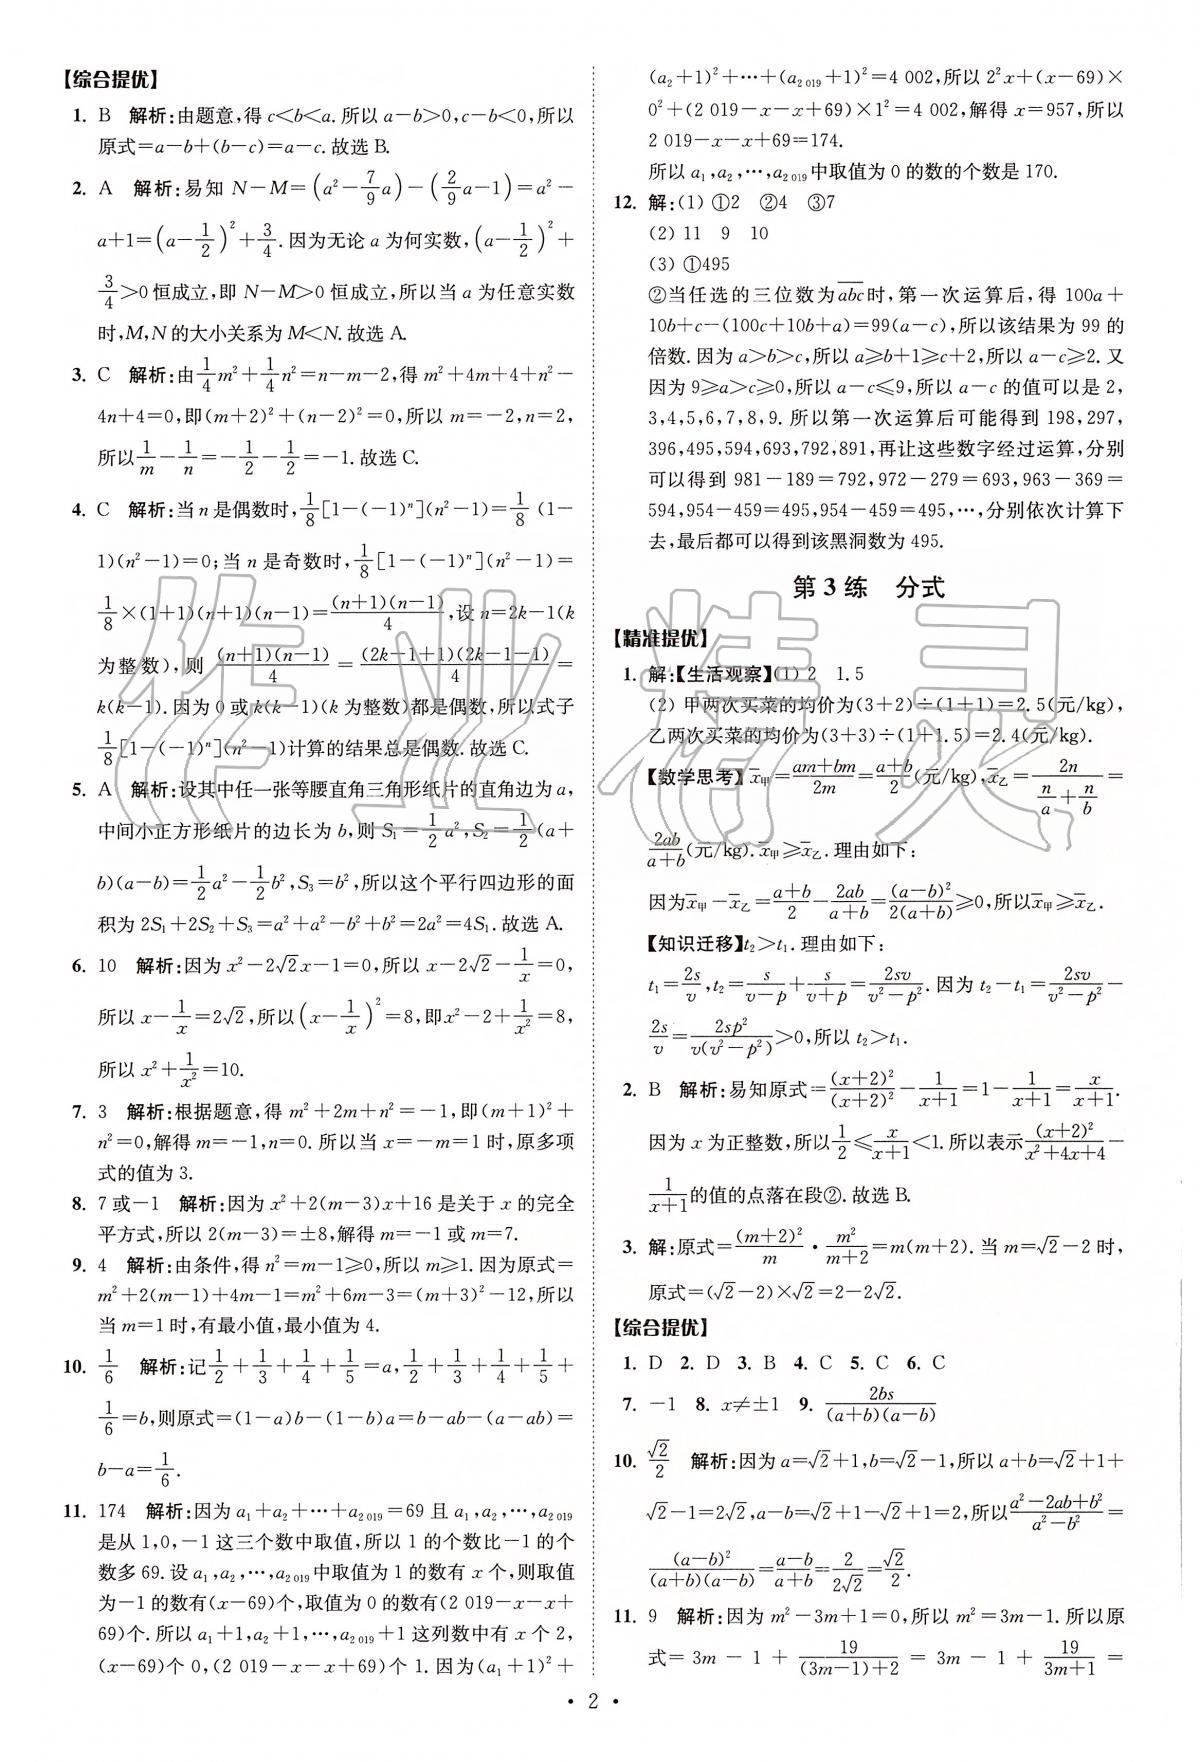 【综合提优】
1. B 解析:由题意,得 c<b<a. 所以 a-b>0,c-b<0,所以
原式=a-b+(b-c)=a-c. 故选 B.
2. A 解析:易知 N-M=(a²-7/9 a)-(2/9 a-1)=a²-
a+1=(a-1/2)²+3/4. 因为无论 a 为何实数,(a-1/2)²+
3/4>0 恒成立,即 N-M>0 恒成立,所以当 a 为任意实数
时,M,N 的大小关系为 M<N. 故选 A.
3. C 解析:由1/4 m²+1/4 n²=n-m-2,得 m²+4m+4+n²-
4n+4=0,即(m+2)²+(n-2)²=0,所以 m=-2,n=2,
所以1/m-1/n=-1/2-1/2=-1. 故选 C.
4. C 解析:当 n 是偶数时,1/8[1-(-1)ⁿ](n²-1)=1/8(1-
1)(n²-1)=0;当 n 是奇数时,1/8[1-(-1)ⁿ](n²-1)=
1/8×(1+1)(n+1)(n-1)=(n+1)(n-1)/4,设 n=2k-1(k
为整数),则 (n+1)(n-1)/4=(2k-1+1)(2k-1-1)/4=
k(k-1). 因为 0 或 k(k-1)(k 为整数)都是偶数,所以式子
1/8[1-(-1)ⁿ](n²-1)计算的结果总是偶数. 故选 C.
5. A 解析:设其中任一张等腰直角三角形纸片的直角边为 a,
中间小正方形纸片的边长为 b,则 S₁=1/2 a²,S₂=1/2(a+
b)(a-b)=1/2 a²-1/2 b²,S₃=b²,所以这个平行四边形的面
积为 2S₁+2S₂+S₃=a²+a²-b²+b²=2a²=4S₁. 故选 A.
6. 10 解析:因为 x²-2√2x-1=0,所以 x-2√2-1/x=0,
所以 x-1/x=2√2,所以(x-1/x)²=8,即x²-2+1/x²=8,
所以 x²+1/x²=10.
7. 3 解析:根据题意,得 m²+2m+n²=-1,即(m+1)²+
n²=0,解得 m=-1,n=0. 所以当 x=-m=1 时,原多项
式的值为 3.
8. 7 或-1 解析:因为 x²+2(m-3)x+16 是关于 x 的完全
平方式,所以 2(m-3)=±8,解得 m=-1 或 m=7.
9. 4 解析:由条件,得 n²=m-1≥0,所以 m≥1. 因为原式=
m²+2(m-1)+4m-1=m²+6m-3=(m+3)²-12,所以
当 m=1 时,有最小值,最小值为 4.
10. 1/6 解析:记1/2+1/3+1/4+1/5=a,1/2+1/3+1/4+1/5+
1/6=b,则原式=(1-a)b-(1-b)a=b-ab-(a-ab)=
b-a=1/6.
11. 174 解析:因为 a₁+a₂+…+a₂₀₁₉=69 且 a₁,a₂,…,a₂₀₁₉
是从 1,0,-1 这三个数中取值,所以 1 的个数比-1 的个
数多 69. 设 a₁,a₂,…,a₂₀₁₉中取值为 1 的数有 x 个,则取值
为-1 的数有(x-69)个,取值为 0 的数有(2 019-x-x+
69)个. 所以 a₁+1,a₂+1,…,a₂₀₁₉+1 这列数中有 x 个 2,
(x-69)个 0,(2 019-x-x+69)个 1. 因为(a₁+1)²+
(a₂+1)²+…+(a₂₀₁₉+1)²=4 002,所以 2²x+(x-69)×
0²+(2 019-x-x+69)×1²=4 002,解得 x=957,所以
2 019-x-x+69=174.
所以 a₁,a₂,…,a₂₀₁₉中取值为 0 的数的个数是 170.
12. 解:(1) ①2 ②4 ③7
(2) 11 9 10
(3) ①495
②当任选的三位数为a̅b̅c̅时,第一次运算后,得 100a+
10b+c-(100c+10b+a)=99(a-c),所以该结果为 99 的
倍数. 因为 a>b>c,所以 a≥b+1≥c+2,所以 a-c≥2. 又
因为 9≥a>c≥0,所以 a-c≤9,所以 a-c 的值可以是 2,
3,4,5,6,7,8,9. 所以第一次运算后可能得到 198,297,
396,495,594,693,792,891,再让这些数字经过运算,分别
可以得到 981-189=792,972-279=693,963-369=
594,954-459=495,954-459=495,…,分别依次计算下
去,最后都可以得到该黑洞数为 495.
第 3 练 分式
【精准提优】
1. 解:【生活观察】(1) 2 1.5
(2) 甲两次买菜的均价为(3+2)÷(1+1)=2.5(元/kg),
乙两次买菜的均价为(3+3)÷(1+1.5)=2.4(元/kg).
【数学思考】x̅甲=(am+bm)/2m=(a+b)/2(元/kg),x̅乙=2n/(n/a+n/b)=
2ab/(a+b)(元/kg). x̅甲≥x̅乙. 理由如下:
因为x̅甲-x̅乙=(a+b)/2-2ab/(a+b)=(a-b)²/2(a+b)≥0,所以x̅甲≥x̅乙.
【知识迁移】t₂>t₁. 理由如下:
t₁=2s/v,t₂=s/(v-p)+s/(v+p)=2sv/(v²-p²). 因为 t₂-t₁=2sv/(v²-p²)-
2s/v=2sp²/v(v²-p²)>0,所以 t₂>t₁.
2. B 解析:易知原式=(x+2)²/(x+2)²-1/(x+1)=1-1/(x+1)=x/(x+1).
因为 x 为正整数,所以1/2≤x/(x+1)<1. 所以表示(x+2)²/(x²+4x+4)-
1/(x+1)的值的点落在段②. 故选 B.
3. 解:原式=(m+2)²/m·m²/(m+2)=m(m+2). 当 m=√2-2 时,
原式=(√2-2)×√2=2-2√2.
【综合提优】
1. D 2. D 3. B 4. C 5. C 6. C
7. -1 8. x≠±1 9. 2bs/(a+b)(a-b)
10. √2/2 解析:因为 a=√2+1,b=√2-1,所以 a+b=√2+1+
√2-1=2√2,a-b=√2+1-√2+1=2,所以(a²-2ab+b²)/(a²-b²)=
(a-b)²/(a+b)(a-b)=(a-b)/(a+b)=2/2√2=√2/2.
11. 9 解析:因为 m²-3m+1=0,所以 m²=3m-1. 所以原
式=3m-1+19/((3m-1)+2)=3m-1+19/(3m+1)=
• 2 •
作业精灵